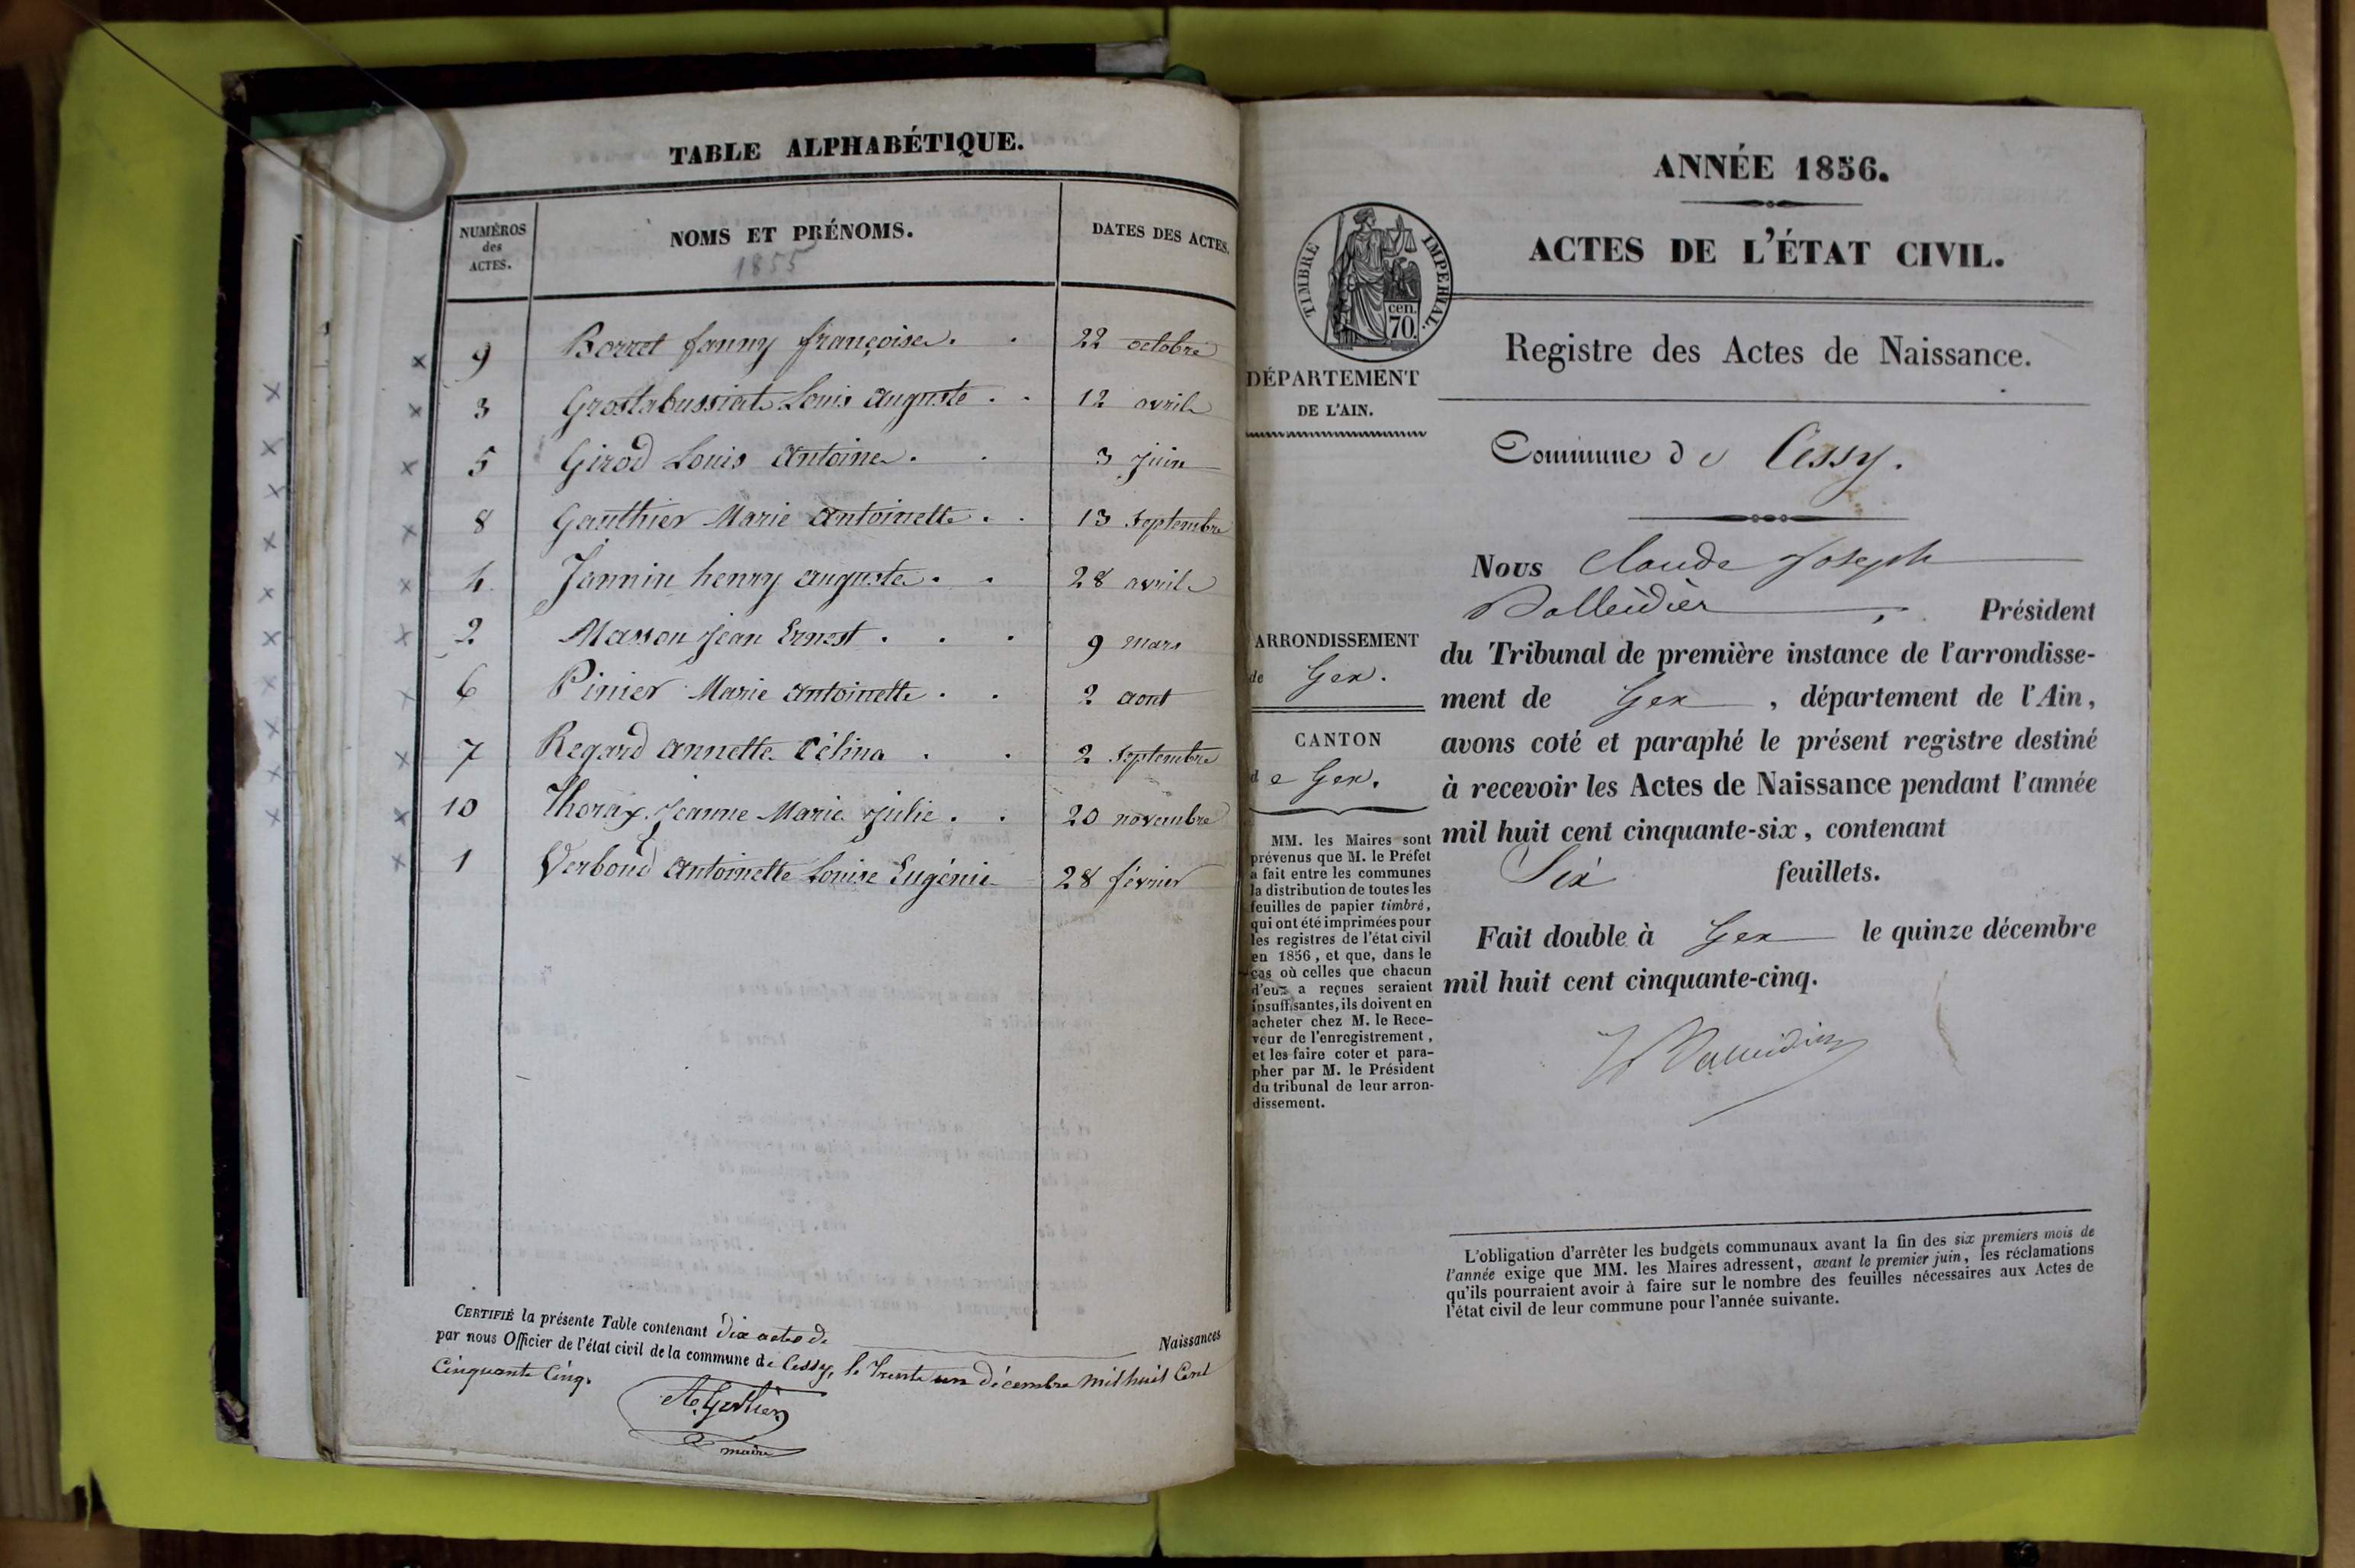 TABLE ALPHABÉTIQUE.
NUMÉROS
des
ACTES.
NOMS ET PRÉNOMS.
1855
DATES DES ACTES.
9 Borret fanny françoise. . 22 octobre
3 Grostabussiat Louis auguste . . 12 avril
5 Girod Louis antoine. . 3 juin
8 Gauthier Marie antoinette . . 13 Septembre
4 Jannin henry auguste . . 28 avril
2 Masson jean Ernest . . . 9 mars
6 Pinier Marie antoinette . . 2 aout
7 Regard annette Célina . . 2 Septembre
10 Thoray jeanne Marie julie . . 20 novembre
1 Verboud antoinette Louise Eugénie 28 février
CERTIFIÉ la présente Table contenant dix actes de Naissances
par nous Officier de l'état civil de la commune de Cessy, le trente un décembre mil huit Cent
Cinquante Cinq.
maire
ANNÉE 1856.
ACTES DE L'ÉTAT CIVIL.
TIMBRE IMPERIAL.
cen.
70.
Registre des Actes de Naissance.
DÉPARTEMENT
DE L'AIN.
Commune de Cessy.
Nous Claude Joseph
Balleidier, Président
du Tribunal de première instance de l'arrondisse-
ment de Gex, département de l'Ain,
avons coté et paraphé le présent registre destiné
à recevoir les Actes de Naissance pendant l'année
mil huit cent cinquante-six, contenant
Six feuillets.
Fait double à Gex le quinze décembre
mil huit cent cinquante-cinq.
ARRONDISSEMENT
de Gex.
CANTON
de Gex.
MM. les Maires sont
prévenus que M. le Préfet
a fait entre les communes
la distribution de toutes les
feuilles de papier timbré,
qui ont été imprimées pour
les registres de l'état civil
en 1856, et que, dans le
cas où celles que chacun
d'eux a reçues seraient
insuffisantes, ils doivent en
acheter chez M. le Rece-
veur de l'enregistrement,
et les faire coter et para-
pher par M. le Président
du tribunal de leur arron-
dissement.
L'obligation d'arrêter les budgets communaux avant la fin des six premiers mois de
l'année exige que MM. les Maires adressent, avant le premier juin, les réclamations
qu'ils pourraient avoir à faire sur le nombre des feuilles nécessaires aux Actes de
l'état civil de leur commune pour l'année suivante.